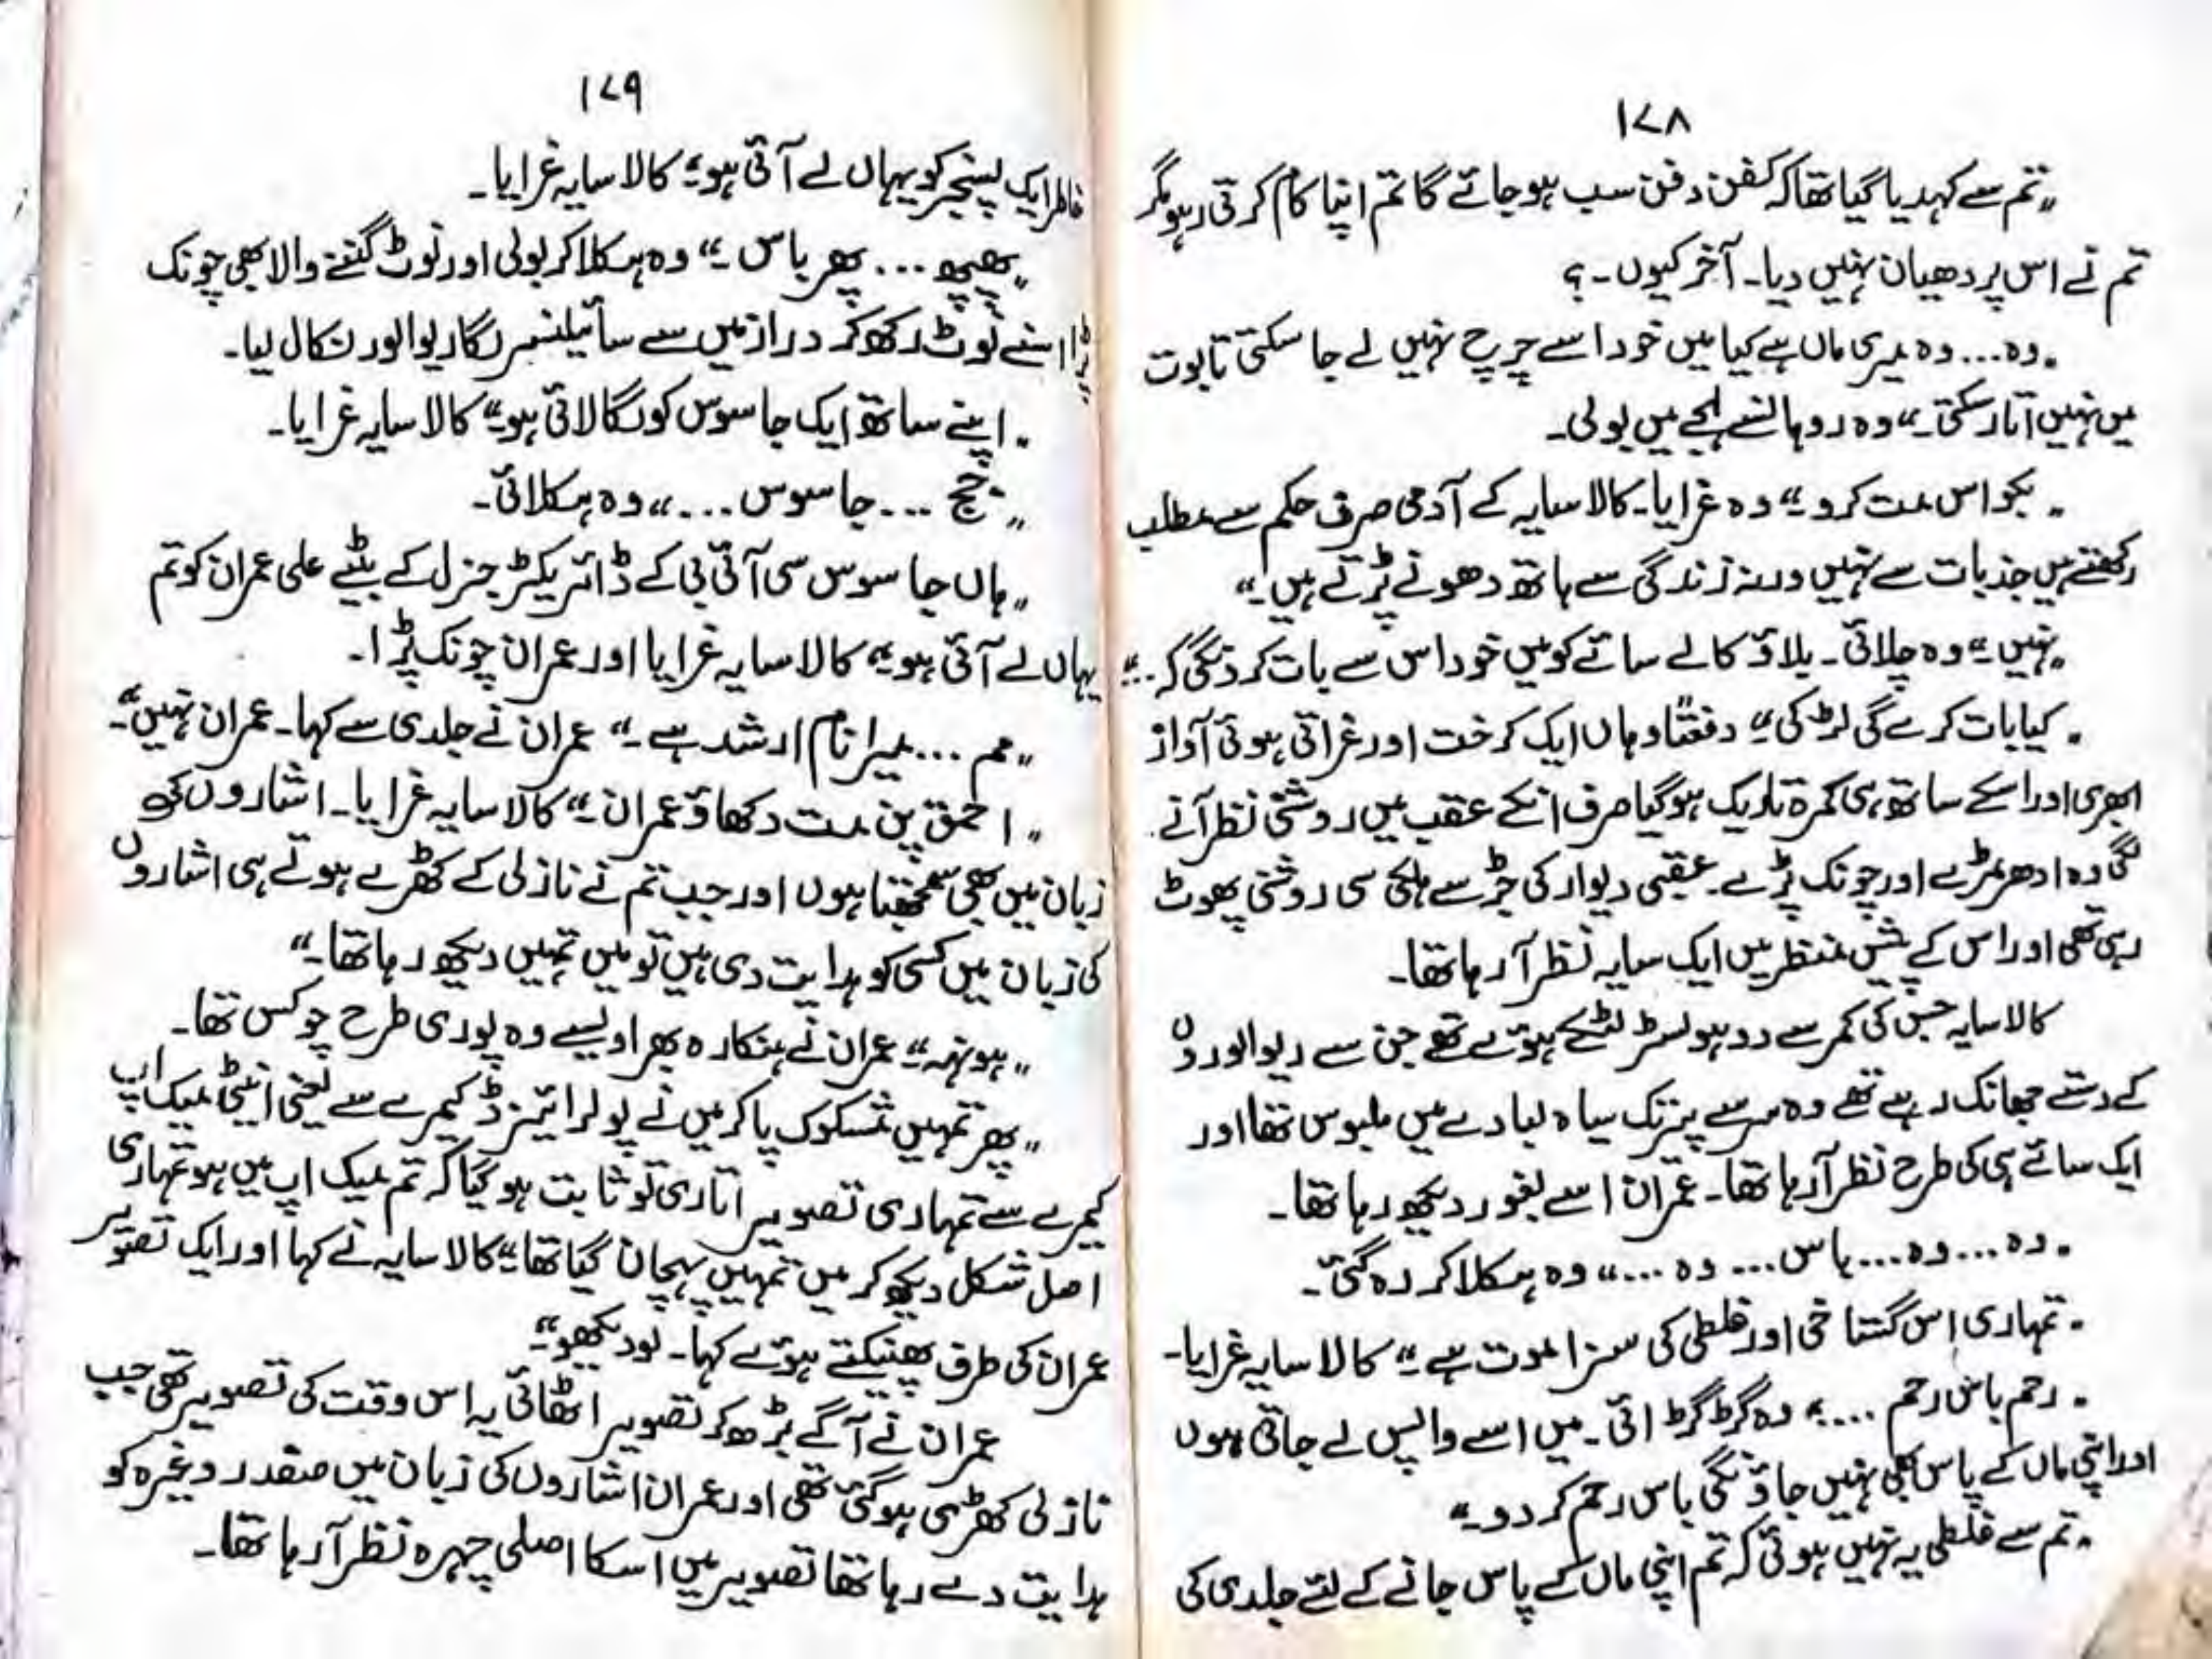 ۱۷۸
"تم سے کہدیا گیا تھا کہ کفن دفن سب ہو جائے گا تم اپنا کام کرتی رہو مگر
تم نے اس پر دھیان نہیں دیا۔ آخر کیوں۔؟
"وہ... وہ میری ماں ہے کیا میں خود اسے چرچ نہیں لے جا سکتی تابوت
میں نہیں اتار سکتی۔" وہ روہانسے لہجے میں بولی۔
"بکواس مت کرو۔" وہ غرایا۔ کالا سایہ کے آدمی صرف حکم سے مطلب
رکھتے ہیں جذبات سے نہیں ورنہ زندگی سے ہاتھ دھونے پڑتے ہیں۔"
"نہیں۔" وہ چلائی۔ بلاؤ کالے سائے کو میں خود اس سے بات کرونگی کہ.."
"کیا بات کرے گی لڑکی۔" دفعتاً وہاں ایک کرخت اور غراتی ہوئی آواز
ابھری اور اسکے ساتھ ہی کمرہ تاریک ہو گیا صرف انکے عقب میں روشنی نظر آنے
لگی وہ ادھر مڑے اور چونک پڑے۔ عقبی دیوار کی جڑ سے ہلکی سی روشنی پھوٹ
رہی تھی اور اس کے پیش منظر میں ایک سایہ نظر آ رہا تھا۔
کالا سایہ جس کی کمر سے دو ہولسٹر لٹکے ہوئے تھے جن سے ریوالوروں
کے دستے جھانک رہے تھے وہ سر سے پیر تک سیاہ لبادے میں ملبوس تھا اور
ایک سائے ہی کی طرح نظر آ رہا تھا۔ عمران اسے بغور دیکھ رہا تھا۔
"وہ... وہ... باس... وہ..." وہ ہکلا کر رہ گئی۔
"تمہاری اس گستاخی اور غلطی کی سزا موت ہے۔" کالا سایہ غرایا۔
"رحم باس رحم ...." وہ گڑگڑائی۔ میں اسے واپس لے جاتی ہوں
اور اپنی ماں کے پاس بھی نہیں جاؤنگی باس رحم کر دو۔"
"تم سے غلطی یہ نہیں ہوئی کہ تم اپنی ماں کے پاس جانے کے لئے جلدی کی
۱۷۹
خاطر ایک پسنجر کو یہاں لے آئی ہو۔" کالا سایہ غرایا۔
"پھپھ... پھر باس۔" وہ ہکلا کر بولی اور نوٹ گننے والا بھی چونک
پڑا اسنے نوٹ رکھ کر دراز میں سے سائیلنسر لگا ریوالور نکال لیا۔
"اپنے ساتھ ایک جاسوس کو لگا لائی ہو۔" کالا سایہ غرایا۔
"جج ... جاسوس ..." وہ ہکلائی۔
"ہاں جاسوس سی آئی بی کے ڈائریکٹر جنرل کے بیٹے علی عمران کو تم
یہاں لے آئی ہو۔" کالا سایہ غرایا اور عمران چونک پڑا۔
"مم ... میرا نام ارشد ہے۔" عمران نے جلدی سے کہا۔ عمران نہیں۔"
"احمق پن مت دکھاؤ عمران۔" کالا سایہ غرایا۔ اشاروں کی
زبان میں بھی سمجھتا ہوں اور جب تم نے نازلی کے کھڑے ہوتے ہی اشاروں
کی زبان میں کسی کو ہدایت دی ہیں تو میں تمہیں دیکھ رہا تھا۔"
"ہونہہ۔" عمران نے ہنکارہ بھرا ویسے وہ پوری طرح چوکس تھا۔
"پھر تمہیں مشکوک پا کر میں نے پولرائیزڈ کیمرے سے یعنی اینٹی میک اپ
کیمرے سے تمہاری تصویر اتاری تو ثابت ہو گیا کہ تم میک اپ میں ہو تمہاری
اصل شکل دیکھ کر میں تمہیں پہچان گیا تھا۔" کالا سایہ نے کہا اور ایک تصویر
عمران کی طرف پھینکتے ہوئے کہا۔ لو دیکھو۔"
عمران نے آگے بڑھ کر تصویر اٹھائی یہ اس وقت کی تصویر تھی جب
نازلی کھڑی ہو گئی تھی اور عمران اشاروں کی زبان میں صفدر وغیرہ کو
ہدایت دے رہا تھا تصویر میں اسکا اصلی چہرہ نظر آ رہا تھا۔